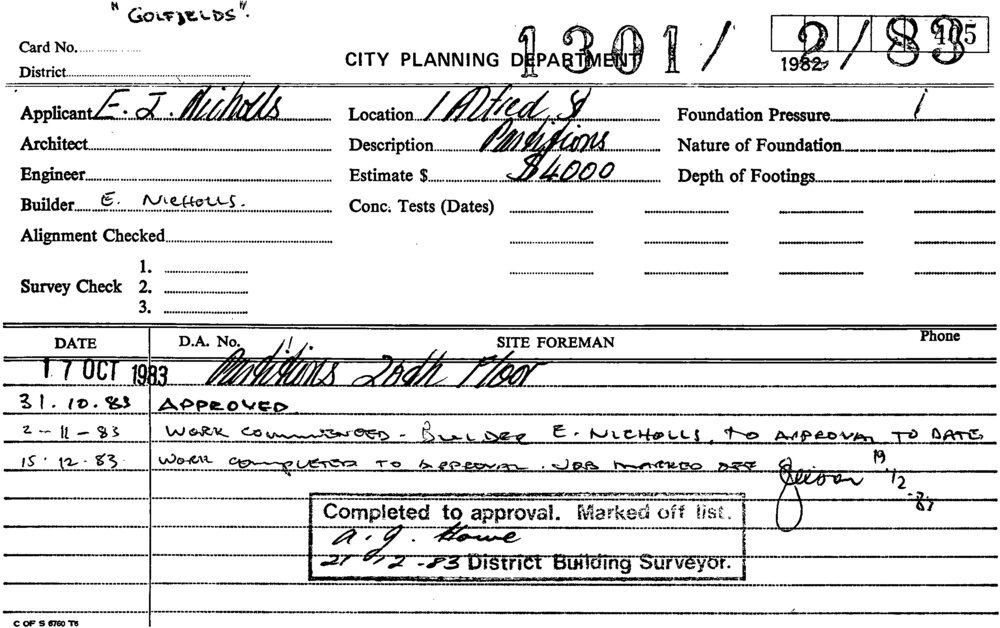 "GOLFJELDS".
Card No.
CITY PLANNING DEPARTMENT 1301/2/83 405
1982
District
Applicant E. J. Nicholls Location 1 Alfred St Foundation Pressure
Architect Description Partitions Nature of Foundation
Engineer Estimate $ $4000 Depth of Footings
Builder E. NICHOLLS. Conc. Tests (Dates)
Alignment Checked
1.
Survey Check 2.
3.
DATE D.A. No. SITE FOREMAN Phone
17 OCT 1983 Partitions Floor
31.10.83 APPROVED
2-11-83 WORK COMMENCED. BUILDER E. NICHOLLS, TO APPROVAL TO DATE
15.12.83 WORK COMPLETED TO APPROVAL. JOB MARKED OFF 19/12-83
Completed to approval. Marked off list.
a.g. Howe
21 12-83 District Building Surveyor.
C OF S 6760 T6